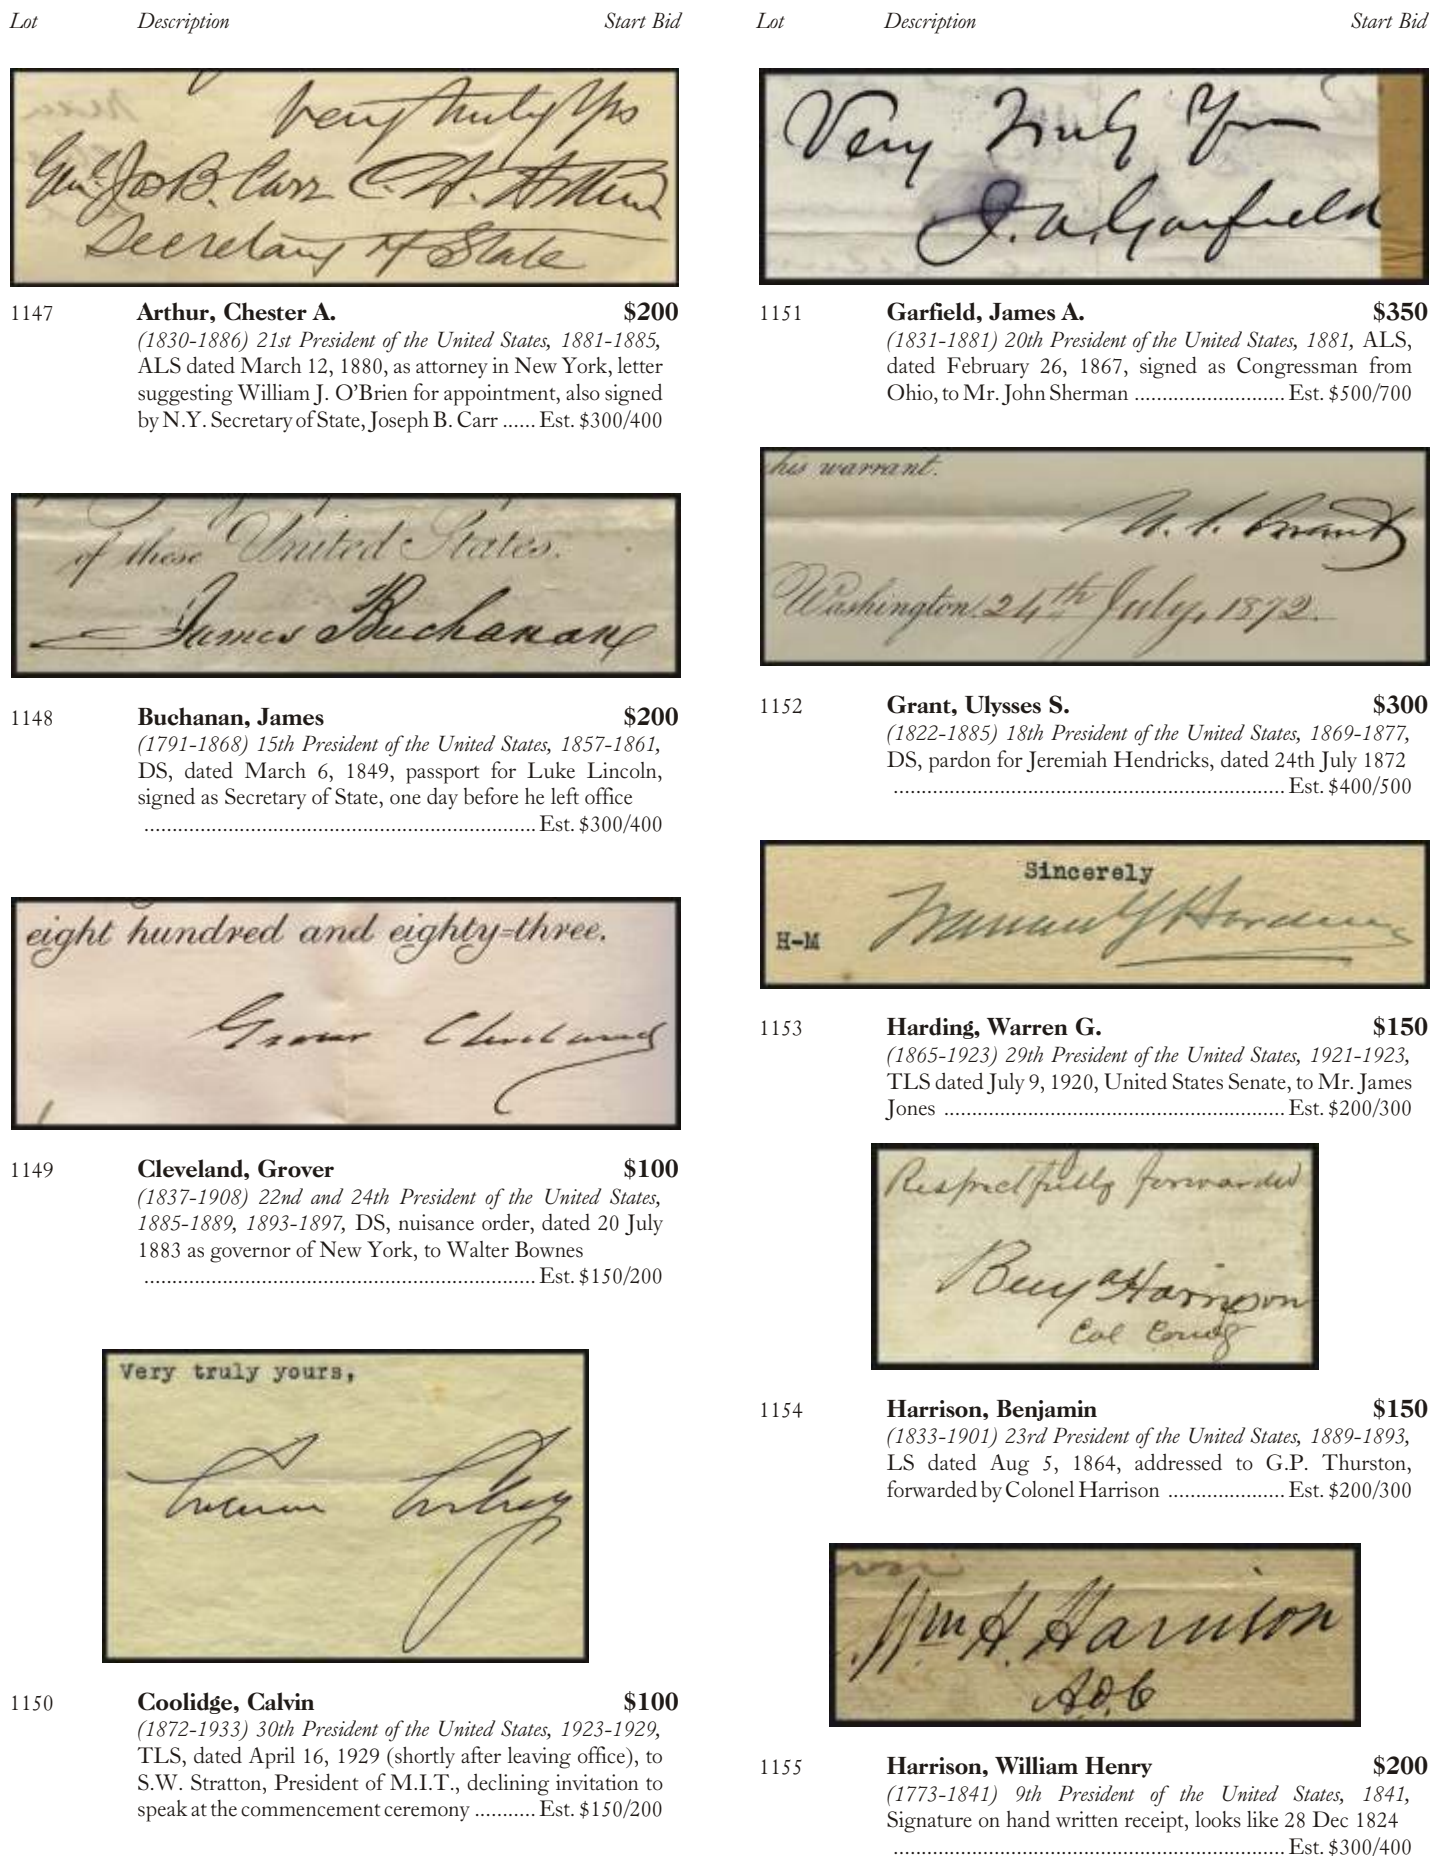 Lot Description Start Bid
Very truly Yrs
Genl. Jos B. Carr C. A. Arthur
Secretary of State
1147 Arthur, Chester A. $200
(1830-1886) 21st President of the United States, 1881-1885,
ALS dated March 12, 1880, as attorney in New York, letter
suggesting William J. O'Brien for appointment, also signed
by N.Y. Secretary of State, Joseph B. Carr ...... Est. $300/400
of these United States.
James Buchanan
1148 Buchanan, James $200
(1791-1868) 15th President of the United States, 1857-1861,
DS, dated March 6, 1849, passport for Luke Lincoln,
signed as Secretary of State, one day before he left office
...................................................................... Est. $300/400
eight hundred and eighty=three.
Grover Cleveland
1149 Cleveland, Grover $100
(1837-1908) 22nd and 24th President of the United States,
1885-1889, 1893-1897, DS, nuisance order, dated 20 July
1883 as governor of New York, to Walter Bownes
...................................................................... Est. $150/200
Very truly yours,
Calvin Coolidge
1150 Coolidge, Calvin $100
(1872-1933) 30th President of the United States, 1923-1929,
TLS, dated April 16, 1929 (shortly after leaving office), to
S.W. Stratton, President of M.I.T., declining invitation to
speak at the commencement ceremony ........... Est. $150/200
Lot Description Start Bid
Very Truly Yours
J. A. Garfield
1151 Garfield, James A. $350
(1831-1881) 20th President of the United States, 1881, ALS,
dated February 26, 1867, signed as Congressman from
Ohio, to Mr. John Sherman ........................... Est. $500/700
his warrant.
U. S. Grant
Washington 24th July, 1872.
1152 Grant, Ulysses S. $300
(1822-1885) 18th President of the United States, 1869-1877,
DS, pardon for Jeremiah Hendricks, dated 24th July 1872
...................................................................... Est. $400/500
Sincerely
Warren G Harding
H-M
1153 Harding, Warren G. $150
(1865-1923) 29th President of the United States, 1921-1923,
TLS dated July 9, 1920, United States Senate, to Mr. James
Jones ............................................................. Est. $200/300
Respectfully forwarded
Benj Harrison
Col Comdg
1154 Harrison, Benjamin $150
(1833-1901) 23rd President of the United States, 1889-1893,
LS dated Aug 5, 1864, addressed to G.P. Thurston,
forwarded by Colonel Harrison ..................... Est. $200/300
Wm H. Harrison
A.D.C
1155 Harrison, William Henry $200
(1773-1841) 9th President of the United States, 1841,
Signature on hand written receipt, looks like 28 Dec 1824
...................................................................... Est. $300/400